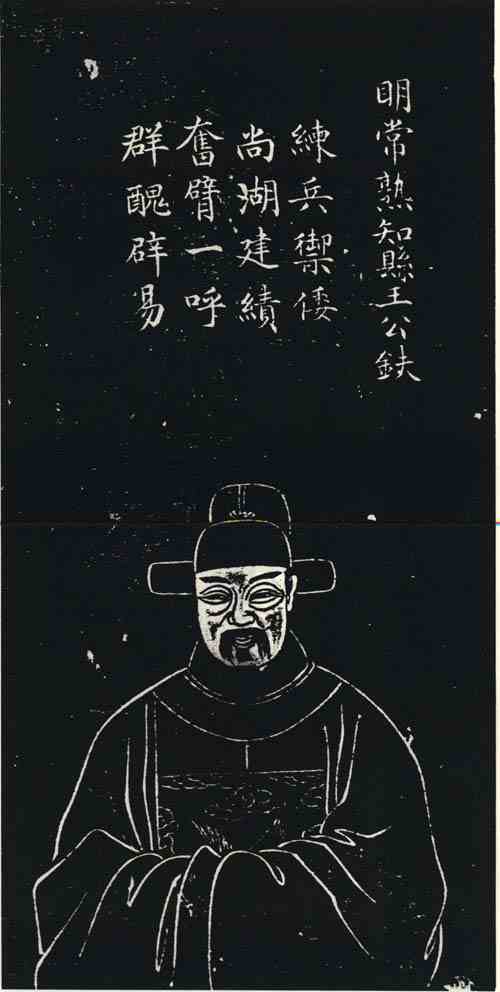 明常熟知縣王公鈇
練兵禦倭
尚湖建績
奮臂一呼
群醜辟易